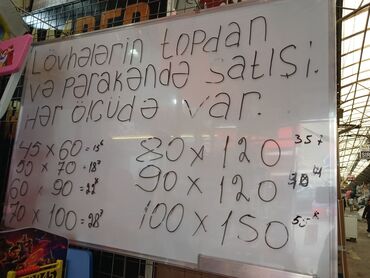 Lövhələrin topdan
və pərakəndə satışı.
Hər ölçüdə var.
45 x 60 = 15₼
50 x 70 = 18₼
60 x 90 = 22₼
70 x 100 = 28₼
80 x 120 35₼
90 x 120
100 x 150